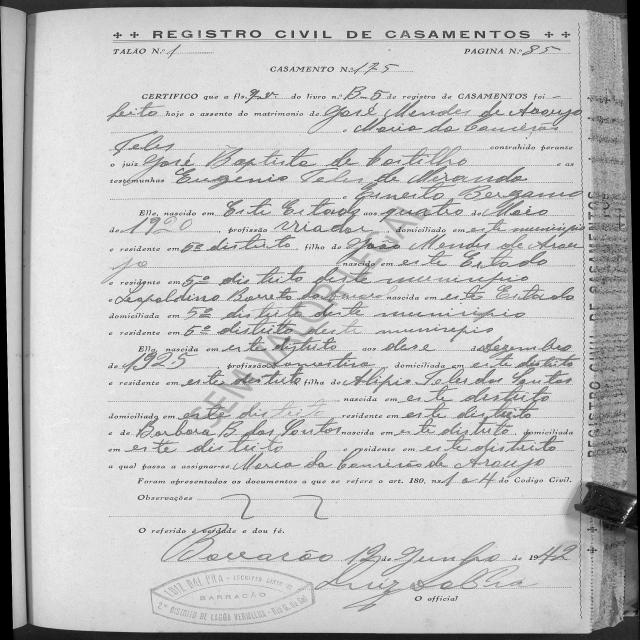 REGISTRO CIVIL DE CASAMENTOS
TALÃO N.º 1 PAGINA N.º 85
CASAMENTO N. 175
CERTIFICO que a fls. 92v do livro n.º B-5 de registro de CASAMENTOS foi
feito hoje o assento do matrimonio de José Mendes de Araujo
e Maria da Conceição
Teles contrahido perante
o juiz José Baptista de Castilho e as
testemunhas Eugenio Teles de Miranda
e Ernesto Bergamo
Elle, nascido em Este Estado aos quatro de Maio
de 1920 profissão criador domiciliado em este municipio
e residente em 5º distrito, filho de João Mendes de Arau
jo nascido em este Estado
e residente em 5º distrito deste municipio
e Leopoldina Barreto nascida em este Estado
domiciliada em 5º distrito deste municipio
e residente em 5º distrito deste municipio
Ella, nascida em este distrito aos dose de Dezembro
de 1925 profissão domestica domiciliada em este distrito
e residente em este distrito filha de Alipio Teles dos Santos
nascida em este distrito
domiciliado em este distrito residente em este distrito
e de Barbara B. dos Santos nascida em este distrito domiciliada
em este distrito e residente em este distrito
a qual passa a assignar-se Maria da Conceisão de Araujo
Foram apresentados os documentos a que se refere o art. 180, ns. 1 a 4 do Codigo Civil.
Observações
O referido é verdade e dou fé.
Barracão 12 de Junho de 1942
Luiz Dal Pra
O official
LUIZ DAL PRA
BARRACÃO
2º DISTRITO DE LAGÔA VERMELHA
SEM VALOR LEGAL
REGISTRO CIVIL DE CASAMENTOS